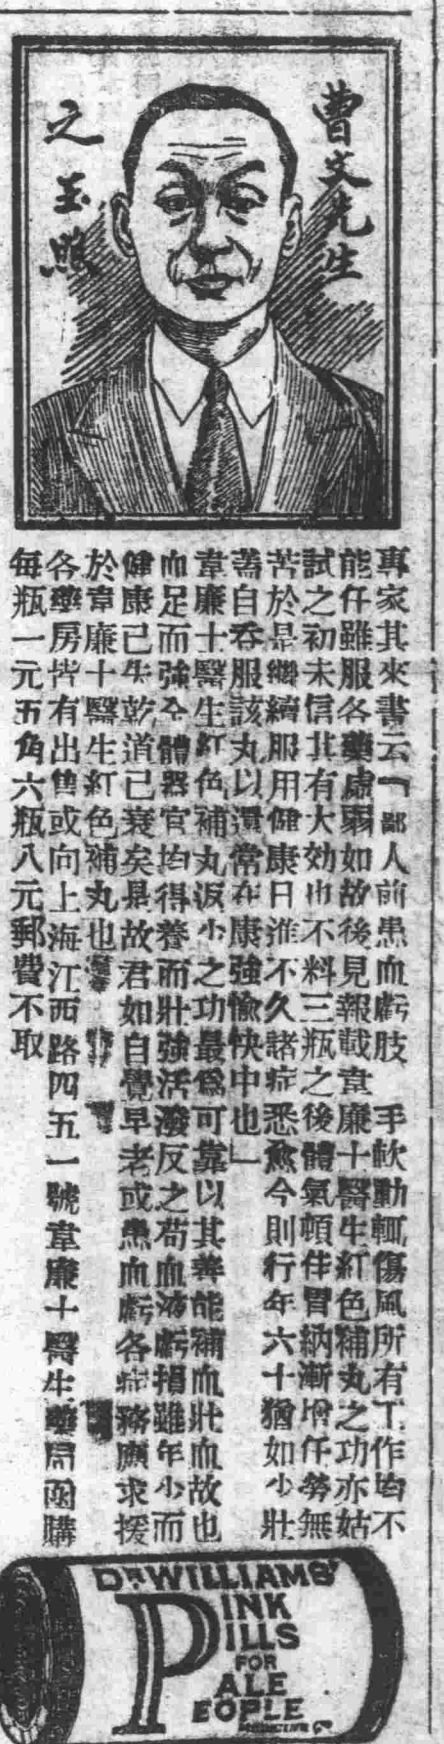 曹文先生
之玉照
專家其來書云「鄙人前患血虧肢 手軟動輒傷風所有工作均不
能任雖服各藥虛弱如故後見報載韋廉士醫生紅色補丸之功亦姑
試之初未信其有大効也不料三瓶之後體氣頓佳胃納漸增任勞無
苦於是繼續服用健康日進不久諸症悉愈今則行年六十猶如少壯
蓋自吞服該丸以還常在康強愉快中也」
韋廉士醫生紅色補丸返少之功最爲可靠以其善能補血壯血故也
血足而強全體器官均得養而壯強活潑反之苟血液虧損雖年少而
健康已失乾道已衰矣是故君如自覺早老或患血虧各症務應求援
於韋廉士醫生紅色補丸也
各藥房皆有出售或向上海江西路四五一號韋廉士醫生藥局函購
每瓶一元五角六瓶八元郵費不取
DR. WILLIAMS'
PINK
PILLS
FOR
PALE
PEOPLE